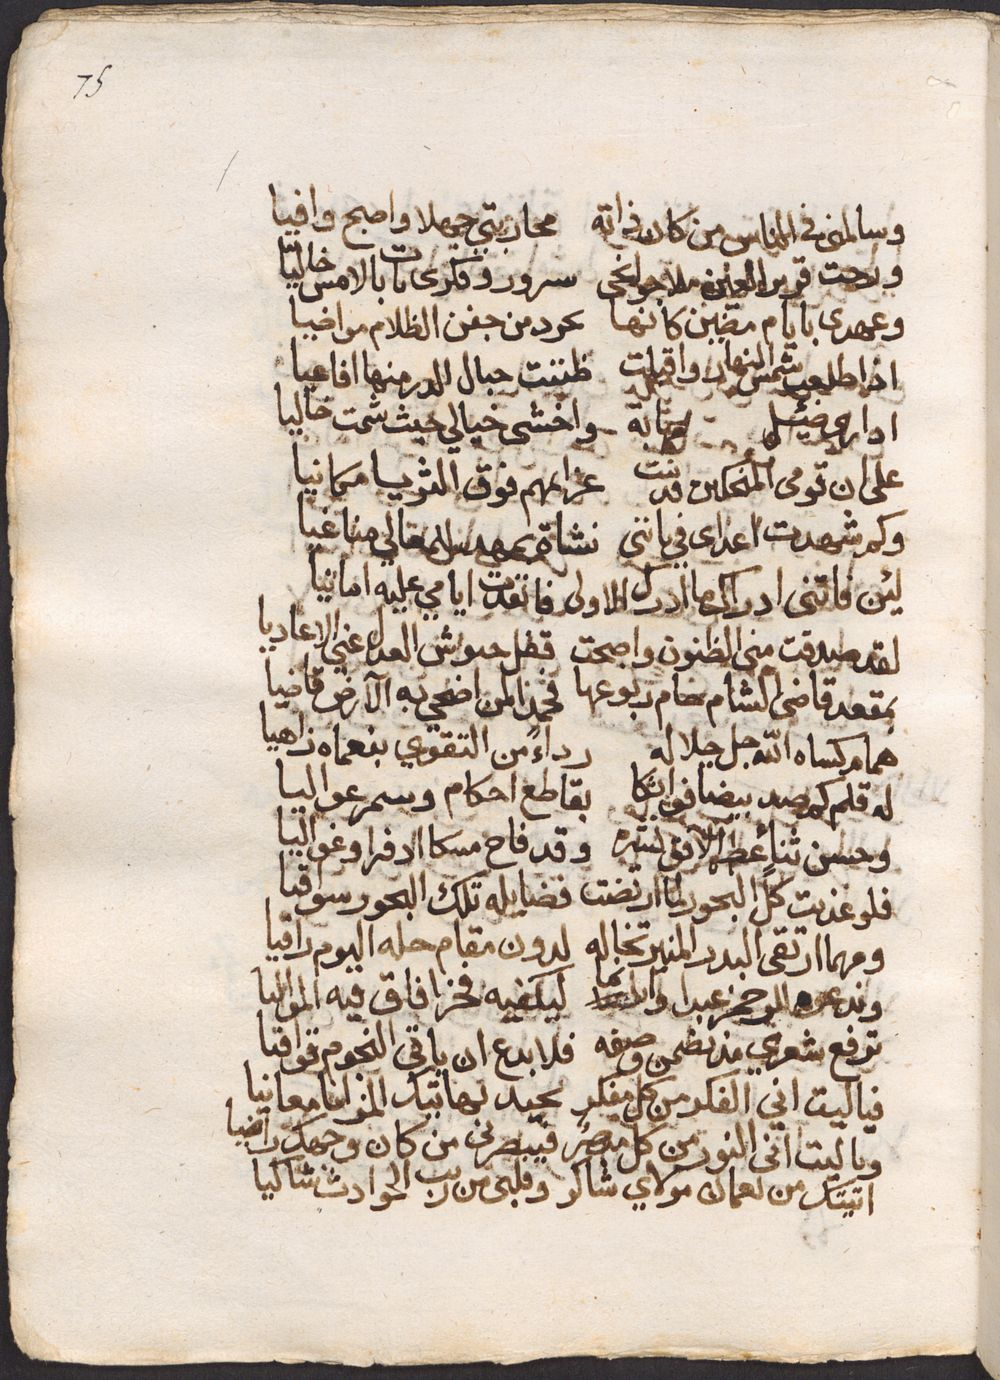 75
وسالمني في الناس من كان ذراته محاربتي جهلا واصبح وافيا
ورحت قرير العين ملا جوانحي سرور وفكري بات بالامس خاليا
وعهدي بايام مضين كانها تحرد من جفن الظلام مواضيا
اذا طلعت شمس النهار واقبلت ظننت حبال الدر منها افاعيا
واخشى خيالي حيث شمت خاليا
على ان قومي المنحكين قد بنت عزايمهم فوق الثريا مكانيا
وكم شهدت اعداي في بانني نشاة بمهد المعالي مناغيا
لئن فاتني ادراك ما ادرك الاولى فا تعدت ايامي عليه امانيا
لقد صدقت مني الظنون واصبحت قفل حبوش العدل عني الاعاديا
بمقعد قاضي الشام ضام ربوعها فحمدا لمن اضحي به الارض قاضيا
همام كساه الله جل جلاله رداء من التقوى بنعماه زاهيا
له قلم كم صد بيضا فواتكا بقاطع احكام وسمر عواليا
وحسن ثناء عطر الافق نشره وقد فاح مسكا اذفرا وغواليا
فلو عذبت كل البحور لما ارتضت فضايله تلك البحور سواقيا
ومهما ارتقى البدر المنير تخاله لدون مقام حله اليوم راقيا
ليكفيه فخرا فاق فيه المواليا
ترفع شعري مذ تضمن وصفه فلا بدع ان ياتي النجوم قوافيا
فياليت اني الفكر من كل مفكر بحيد بها تيك المزايا معانيا
وياليت انني النور من كل مبصر فيبصرني من كان وجهك رائيا
اتيتك من نعماك مولاي شاكر وقلبي من ريب الحوادث شاكيا